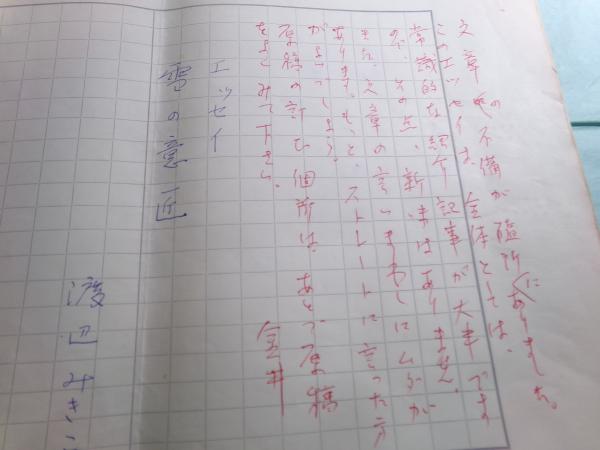 文章の不備が随所にありました。
このエッセイは、全体としては、
常識的な紹介記事が大半です
ので、その点、新味はありません。
また、文章の言いまわしにムダが
あります。もっと、ストレートに言った方
がよいでしょう。
原稿の個所は、あとで原稿
をよくみて下さい。 金井
エッセイ
雪の意匠